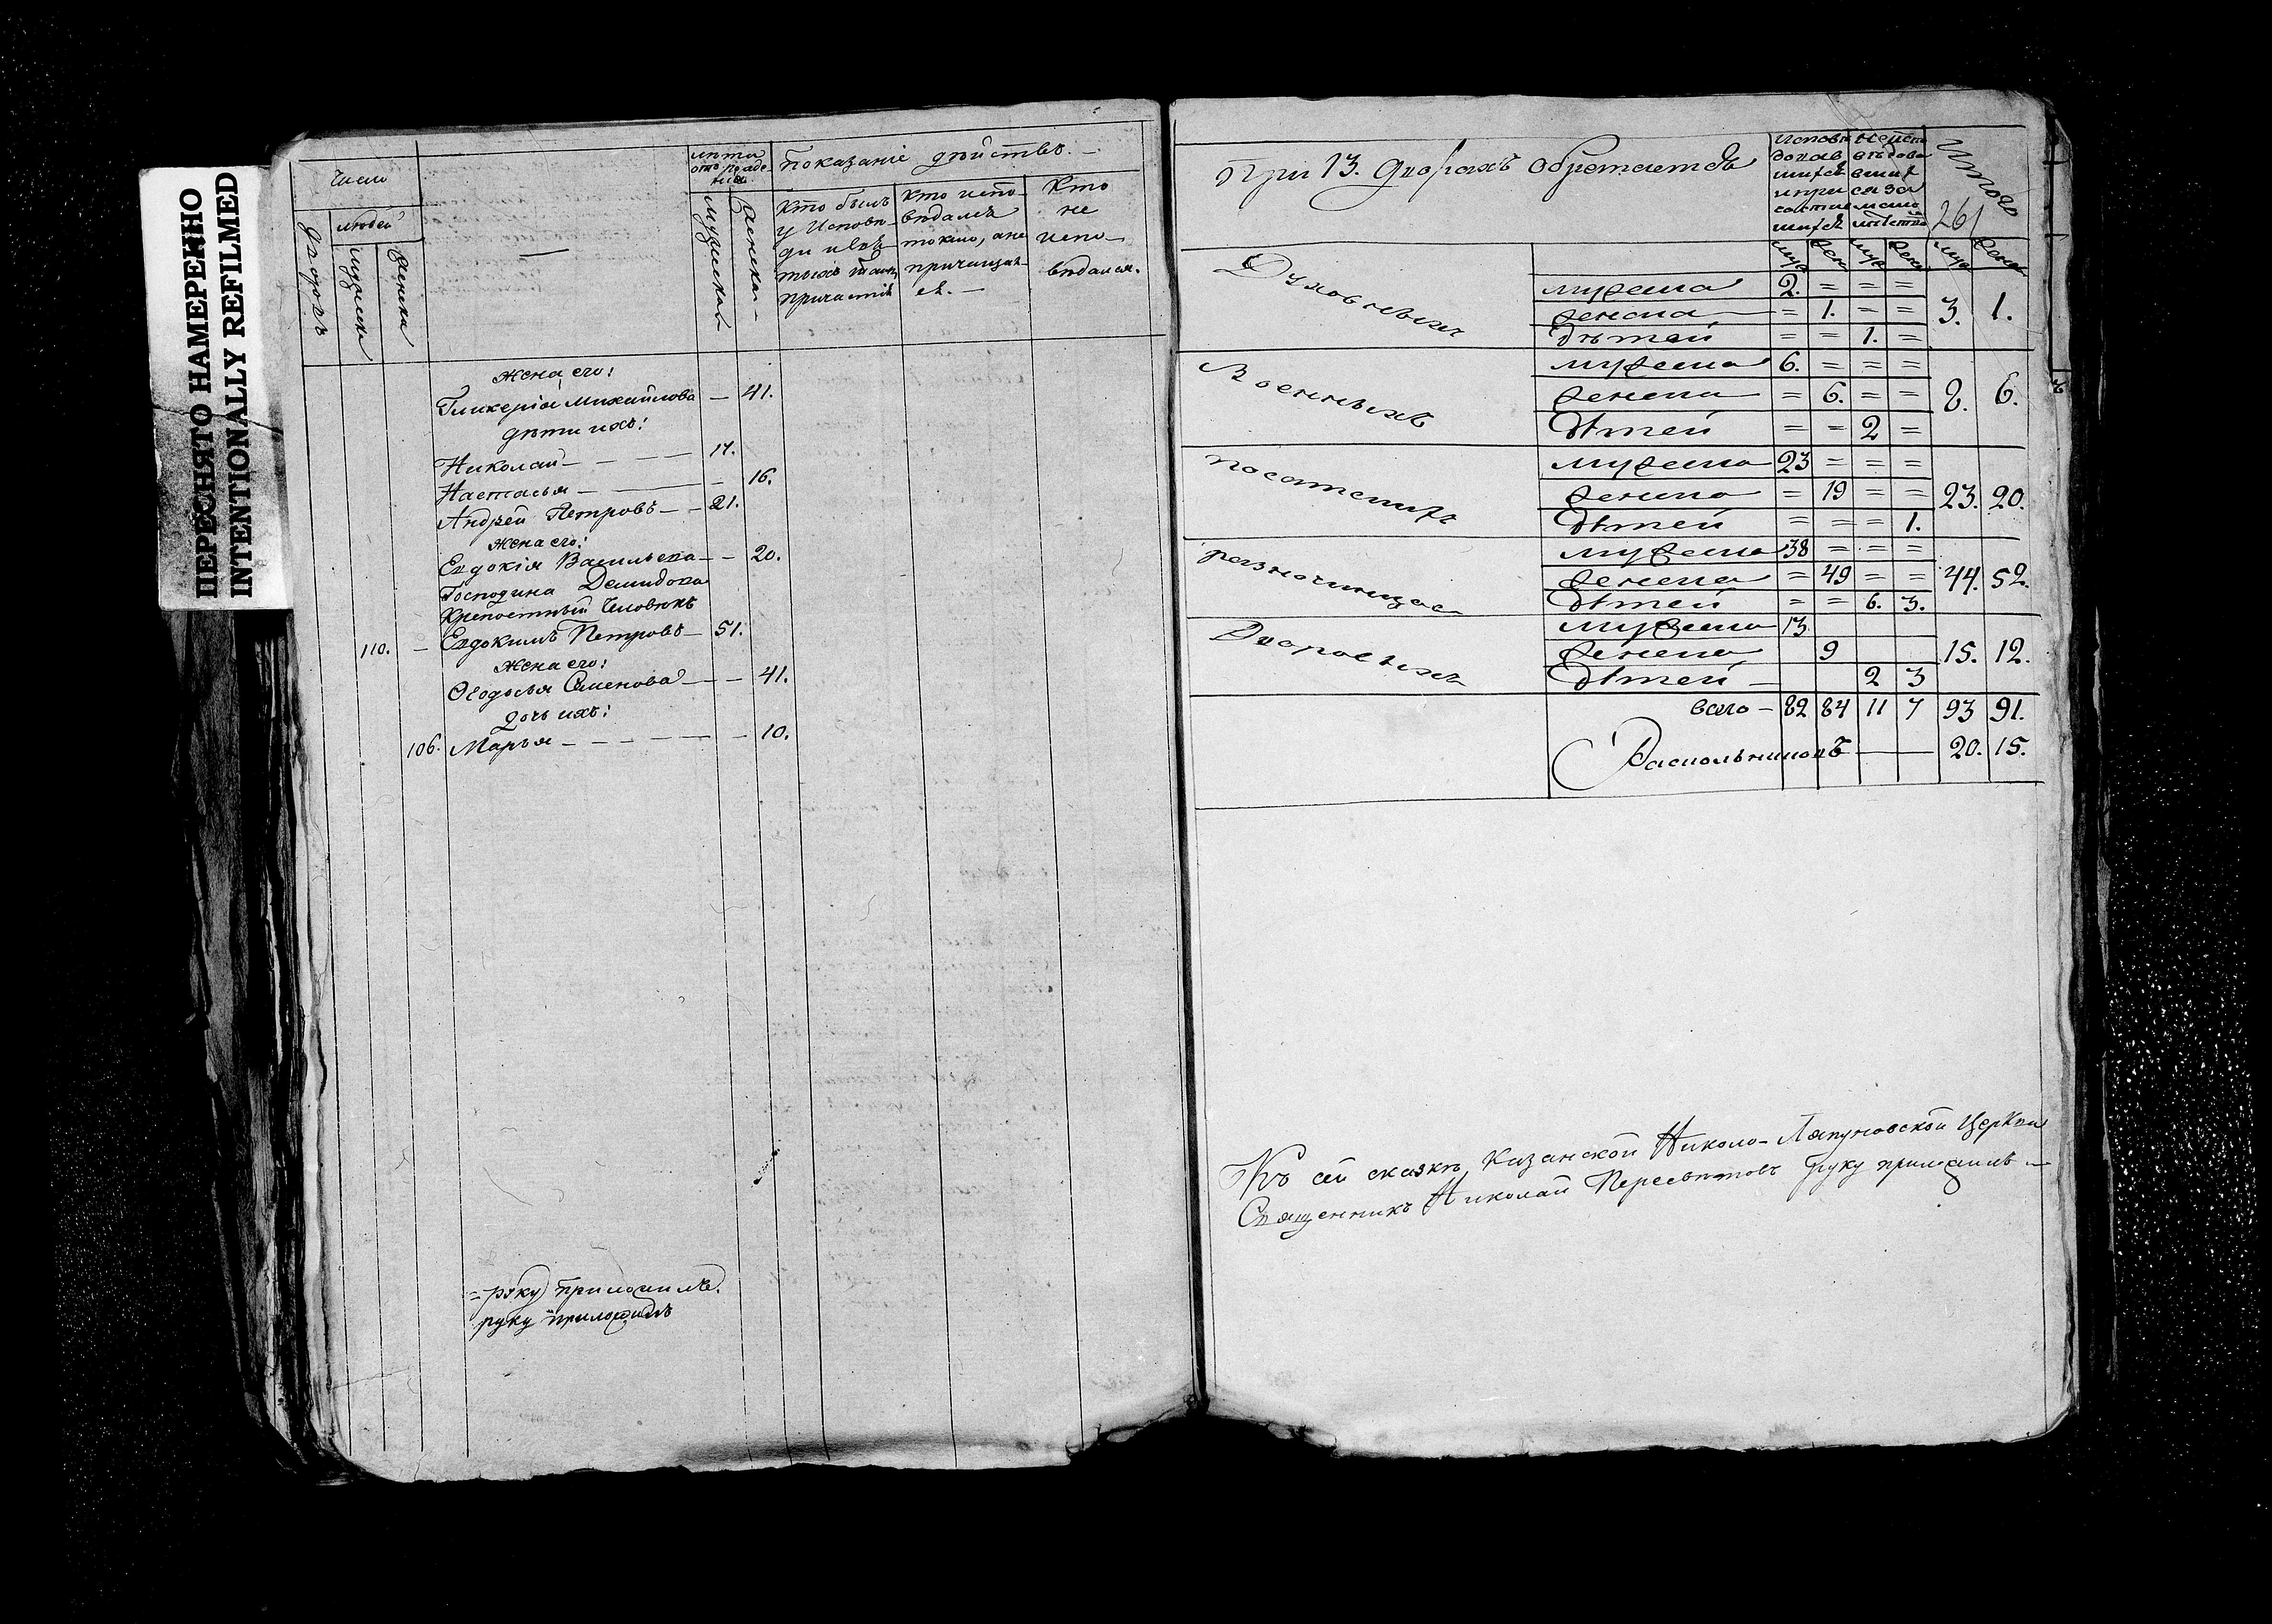 ПЕРЕСНЯТО НАМЕРЕННО
INTENTIONALLY REFILMED
Число
людей
дворовъ
мужеска
женска
лѣта
отъ рожде
нія
мужеска
женска
Показаніе дѣйствъ.
Кто былъ
у Исповѣ-
ди и свя-
тыхъ таинъ
причастія
Кто испо-
вѣдался
токмо, а не
причащал-
ся.
Кто
не
испо-
вѣдался.
Жена его:
Гликерія Михайлова — 41.
дѣти ихъ:
Николай — 17.
Настасья — 16.
Андрей Петровъ — 21.
Жена его:
Евдокія Васильева — 20.
Господина Демидова
Крепостный Человѣкъ
110. — Евдокимъ Петровъ — 51.
Жена его:
Ѳеодосья Семенова — 41.
Дочь ихъ:
106. Марья — 10.
= руку приложилъ.
руку приложилъ
При 13. дворахъ обретается
Исповѣ
довав
шихся
и при
частив
шихся
Неиспо
вѣдова
вших
ся за
мало
лѣтство
Итого
261
муж жен муж жен муж жен
Духовныхъ
мужеска 2. = = =
женска = 1. = = 3. 1.
дѣтей = = 1. =
Военныхъ
мужеска 6. = = =
женска = 6. = = 8. 6.
дѣтей = = 2 =
посатскихъ
мужеска 23 = = =
женска = 19 = = 23. 20.
дѣтей = = = 1.
разночинцовъ
мужеска 38 = = =
женска = 49 = = 44. 52.
дѣтей = = 6. 3.
Дворовыхъ
мужеска 13
женска 9 15. 12.
дѣтей — 2 3
всего — 82 84 11 7 93 91.
Раскольниковъ — 20. 15.
Къ сей сказкѣ, Казанской Николо-Ляпуновской Церкви
Священникъ Николай Пересвѣтовъ руку приложилъ —